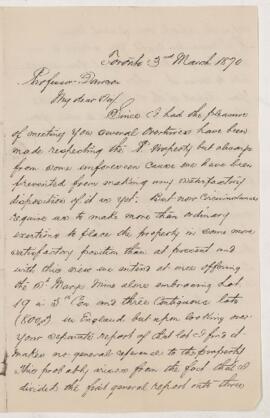 Toronto 3rd March 1870
Professor Dawson
My dear Sir
Since I had the pleasure
of meeting you several overtures have been
made respecting the Property but always
from some unforeseen cause we have been
prevented from making any satisfactory
disposition of it as yet. But now circumstances
require us to make more than ordinary
exertion to place the property in some more
satisfactory position than at present and
with this view we intend at once offering
the Mine alone embracing Lot
19 in 3rd Con and three Contiguous lots
in England but upon looking over
your separate report of that lot I find it
makes no general reference to the property
This probably arises from the fact that I
divided the first general report into three